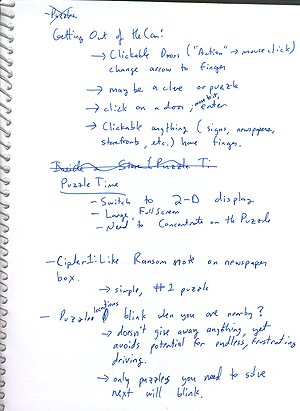 - Puzzles
Getting Out of the Car!
→ Clickable Doors ("Action" → mouse click)
change arrow to finger
→ maybe a clue or puzzle
→ click on a door, enter
→ Clickable anything (signs, newspapers,
storefronts, etc.) have finger.
Inside a Store / Puzzle Ti
Puzzle Time
- Switch to 2-D display
- Large, Full Screen
- Need to Concentrate on the Puzzle
- Cipher 1: Like Ransom note on newspaper
box.
→ simple, #1 puzzle
- Puzzle locations blink when you are nearby?
→ doesn't give away anything, yet
avoids potential for endless, frustrating
driving.
→ only puzzles you need to solve
next will blink.